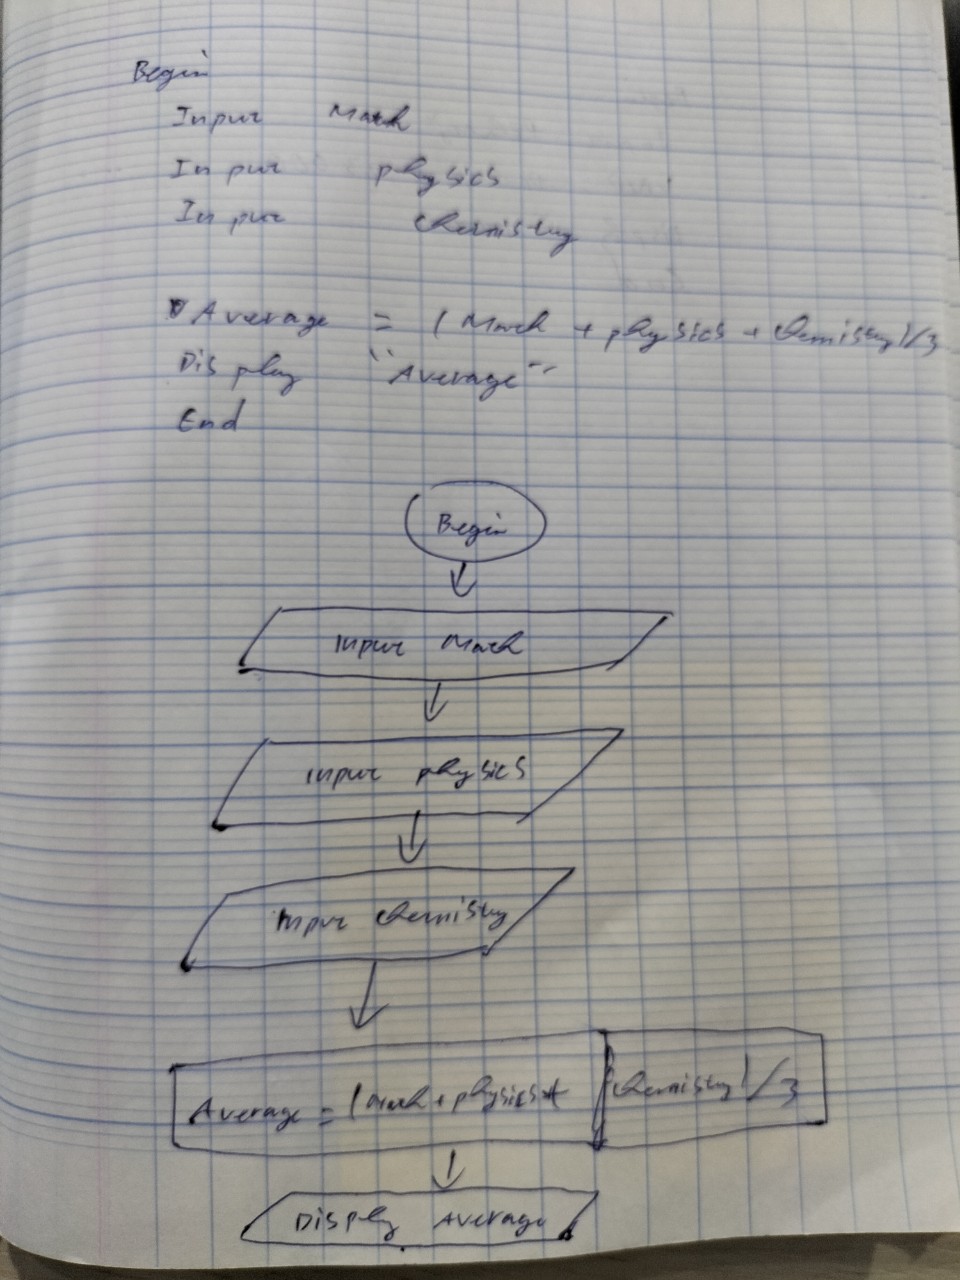 Begin
Input Math
Input physics
Input chemistry
Average = (Math + physics + chemistry)/3
Display "Average"
End
Begin
Input Math
Input physics
Input chemistry
Average = (Math + physics + chemistry)/3
Display Average